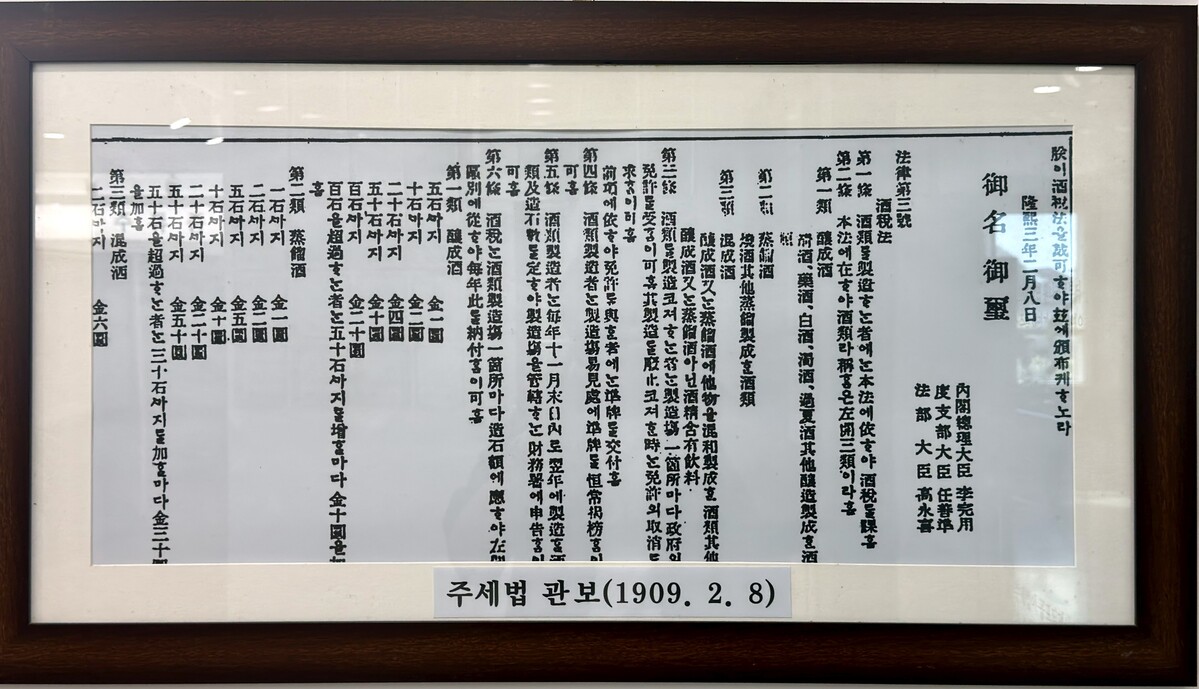 朕이酒稅法을裁可ᄒᆞ야玆에頒布케ᄒᆞ노라
隆熙三年二月八日
御名御璽
內閣總理大臣 李完用
度支部大臣 任善準
法部大臣 高永喜
法律第三號
酒稅法
第一條 酒類를製造ᄒᆞᄂᆞᆫ者에ᄂᆞᆫ本法에依ᄒᆞ야酒稅를課홈
第二條 本法에在ᄒᆞ야酒類라稱홈은左開三類이라홈
第一類 釀成酒
淸酒、藥酒、白酒、濁酒、過夏酒其他釀造製成ᄒᆞᆫ酒
類
第二類 蒸餾酒
燒酒其他蒸餾製成ᄒᆞᆫ酒類
第三類 混成酒
釀成酒又ᄂᆞᆫ蒸餾酒에他物을混和製成ᄒᆞᆫ酒類其他
釀成酒又ᄂᆞᆫ蒸餾酒아닌酒精含有飮料
第三條 酒類를製造코져ᄒᆞᄂᆞᆫ者ᄂᆞᆫ製造場一箇所마다政府의
免許를受홈이可홈其製造를廢止코져ᄒᆞᆯ時ᄂᆞᆫ免許의取消를
求홈이可홈
前項에依ᄒᆞ야免許를與ᄒᆞᆫ者에ᄂᆞᆫ準牌를交付홈
第四條 酒類製造者ᄂᆞᆫ製造場易見處에準牌를恒常揭榜홈이
可홈
第五條 酒類製造者ᄂᆞᆫ每年十一月末日內로翌年에製造ᄒᆞᆯ酒
類及造石數를定ᄒᆞ야製造場을管轄ᄒᆞᄂᆞᆫ財務署에申告홈이
可홈
第六條 酒稅ᄂᆞᆫ酒類製造場一箇所마다造石額에應ᄒᆞ야左開
區別에從ᄒᆞ야每年此를納付홈이可홈
第一類 釀成酒
五石ᄭᆞ지 金一圜
十石ᄭᆞ지 金二圜
二十石ᄭᆞ지 金四圜
五十石ᄭᆞ지 金十圜
百石ᄭᆞ지 金二十圜
百石을超過ᄒᆞᄂᆞᆫ者ᄂᆞᆫ五十石ᄭᆞ지를增ᄒᆞᆯ마다金十圜을加
홈
第二類 蒸餾酒
一石ᄭᆞ지 金一圜
二石ᄭᆞ지 金二圜
五石ᄭᆞ지 金五圜
十石ᄭᆞ지 金十圜
二十石ᄭᆞ지 金二十圜
五十石ᄭᆞ지 金五十圜
五十石을超過ᄒᆞᄂᆞᆫ者ᄂᆞᆫ三十石ᄭᆞ지를加ᄒᆞᆯ마다金三十圜
을加홈
第三類 混成酒
二石ᄭᆞ지 金六圜
주세법 관보(1909. 2. 8)